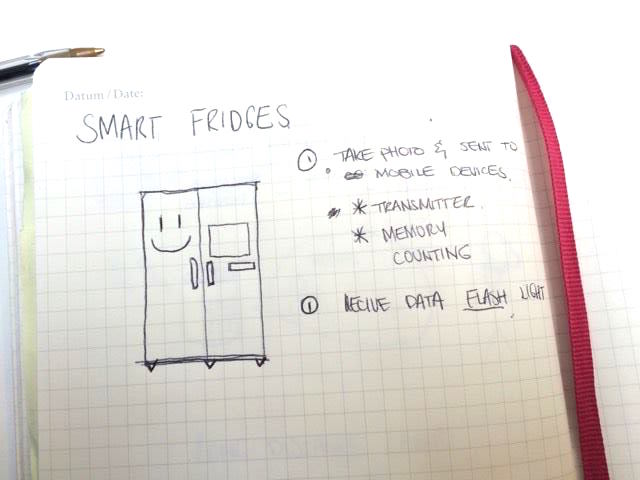 Datum / Date:
SMART FRIDGES
① TAKE PHOTO & SENT TO
MOBILE DEVICES.
* TRANSMITTER.
* MEMORY
COUNTING
① RECIVE DATA FLASH LIGHT